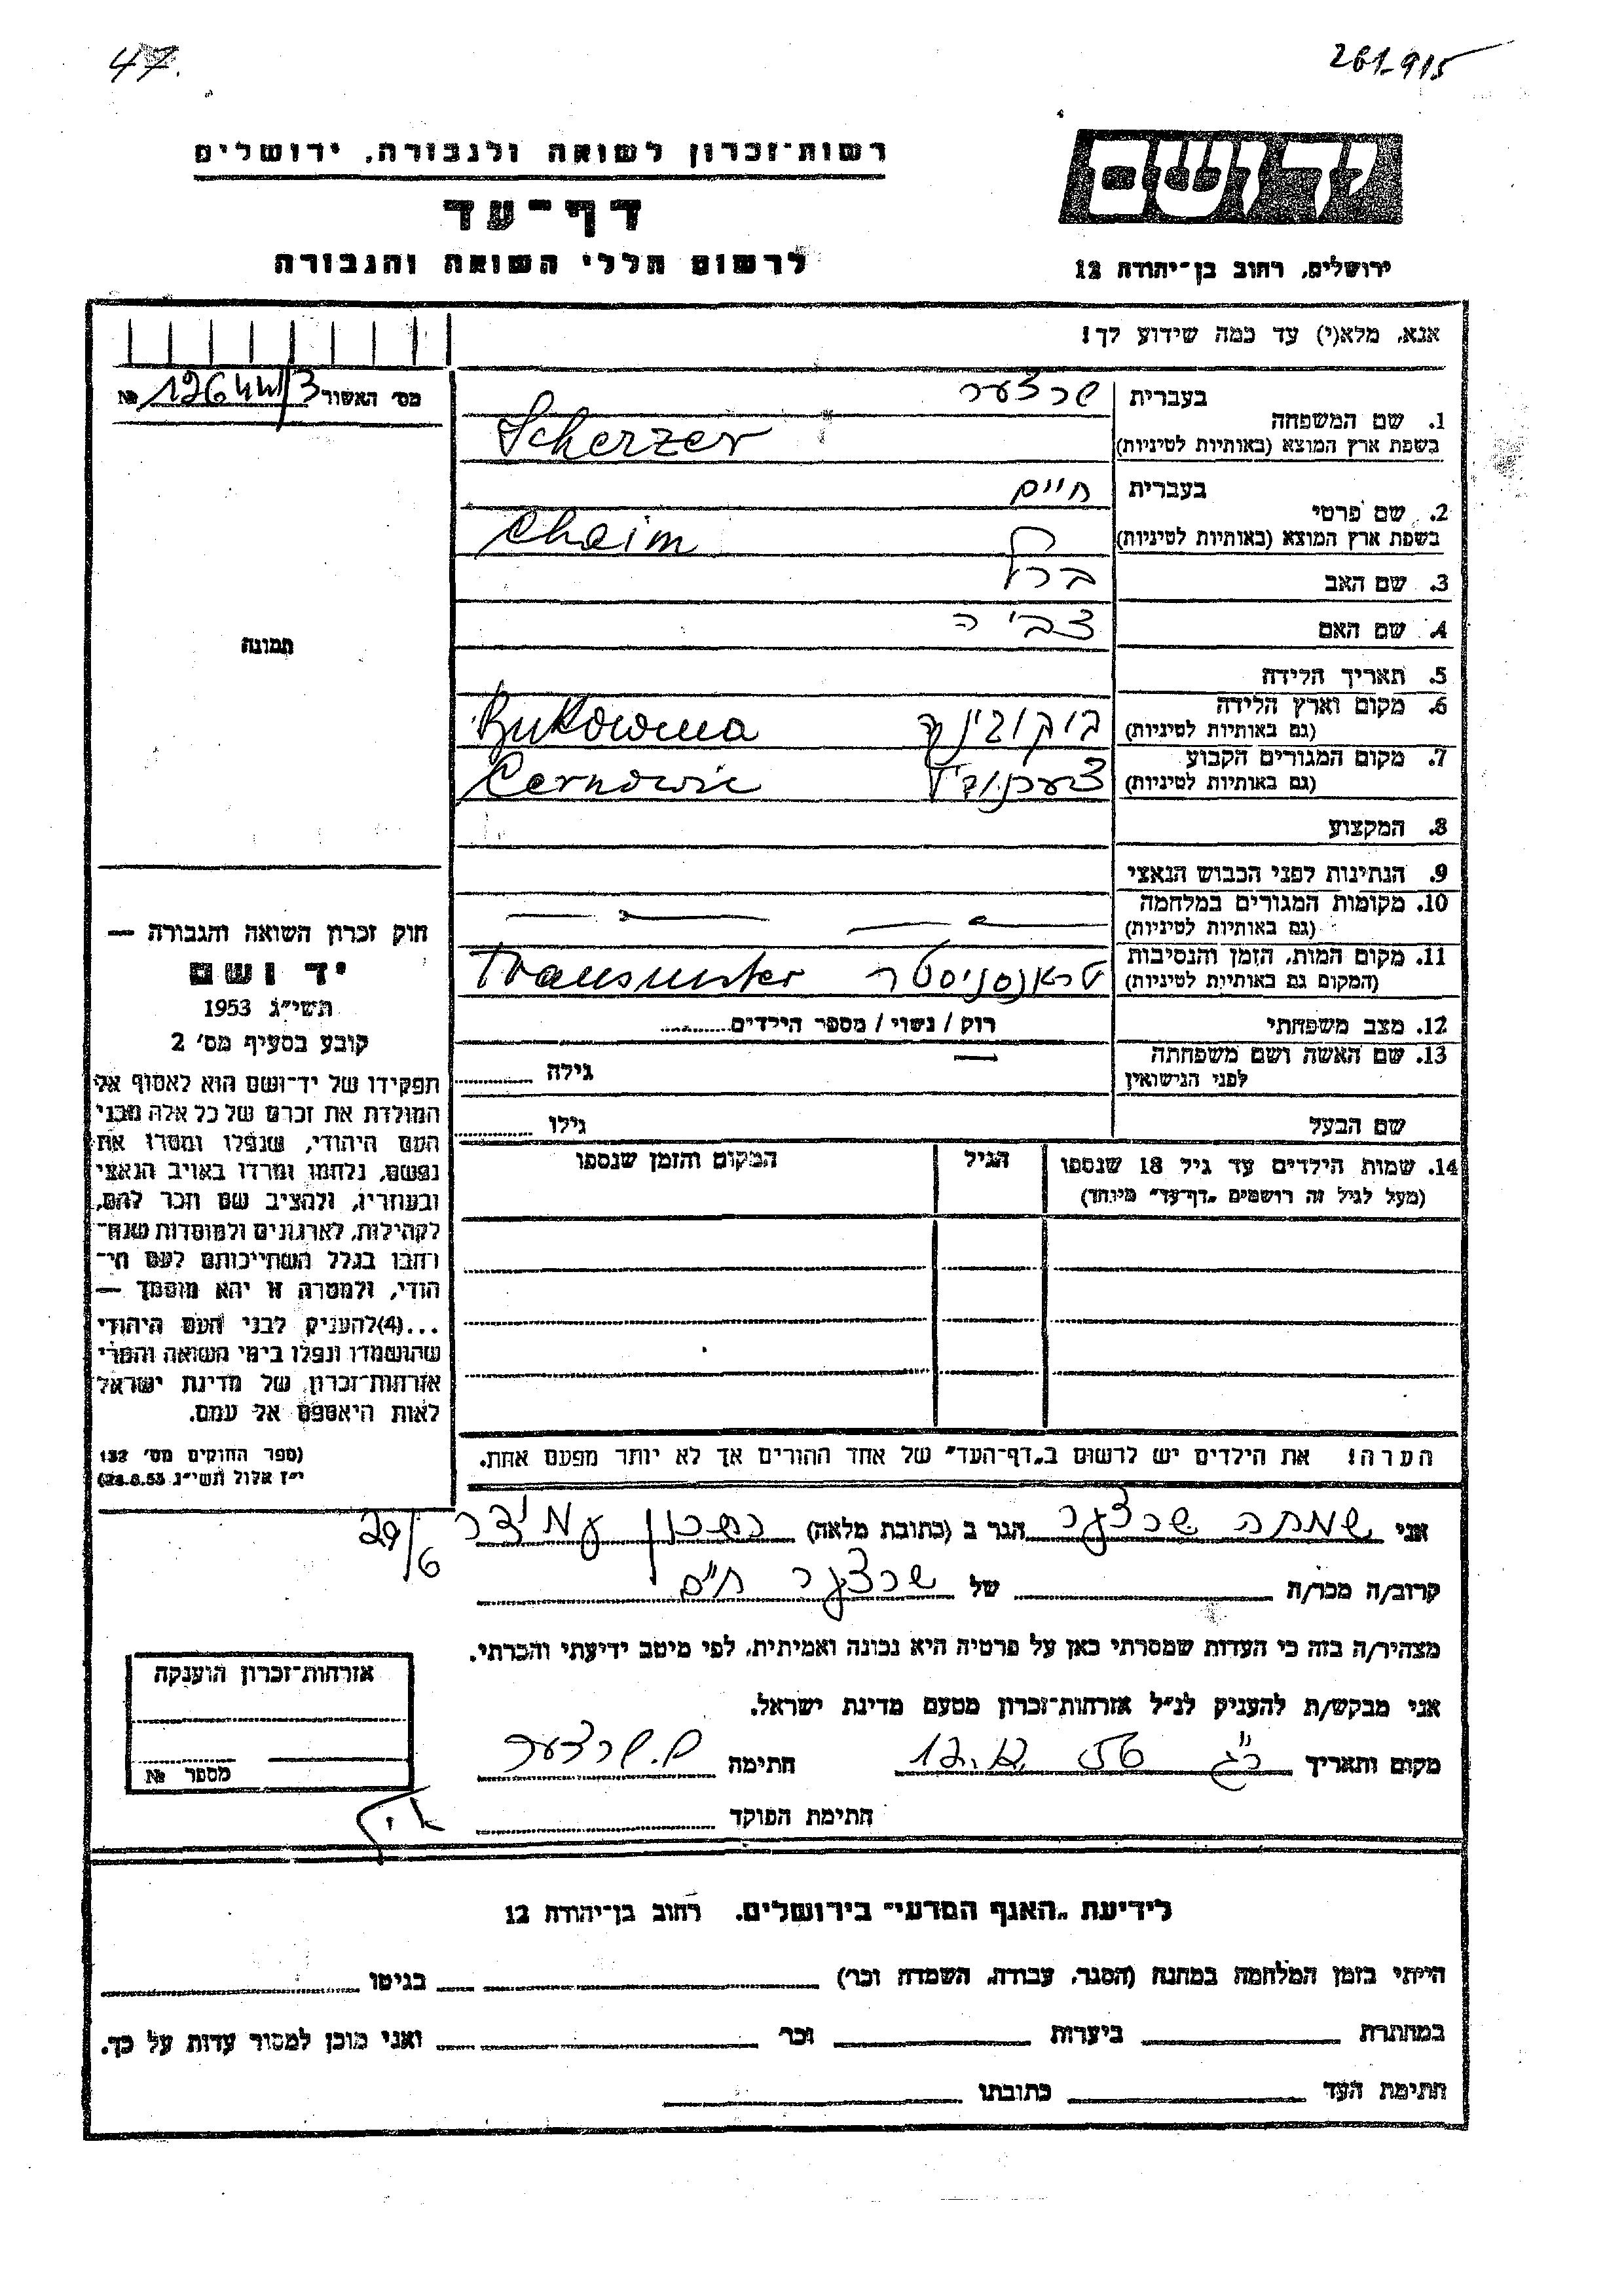 47.
261-915
רשות־זכרון לשואה ולגבורה, ירושלים
דף־עד
לרשום חללי השואה והגבורה
ידושם
ירושלים, רחוב בן־יהודה 12
אנא, מלא(י) עד כמה שידוע לך!
מס' האשור № 12644/3
1. שם המשפחה
בעברית שרצער
בשפת ארץ המוצא (באותיות לטיניות) Scherzer
2. שם פרטי
בעברית חיים
בשפת ארץ המוצא (באותיות לטיניות) Chaim
3. שם האב ברל
4. שם האם צביה
5. תאריך הלידה
6. מקום וארץ הלידה
(גם באותיות לטיניות) בוקובינה Bukowina
7. מקום המגורים הקבוע
(גם באותיות לטיניות) צערנוביץ Cernowic
8. המקצוע
9. הנתינות לפני הכבוש הנאצי
10. מקומות המגורים במלחמה
(גם באותיות לטיניות)
11. מקום המות, הזמן והנסיבות
(המקום גם באותיות לטיניות) טראנסניסטר Transnister
12. מצב משפחתי רוק / נשוי / מספר הילדים
13. שם האשה ושם משפחתה
לפני הנישואין גילה
שם הבעל גילו
14. שמות הילדים עד גיל 18 שנספו
(מעל לגיל זה רושמים „דף־עד" מיוחד)
הגיל
המקום והזמן שנספו
הערה! את הילדים יש לרשום ב„דף־העד" של אחד ההורים אך לא יותר מפעם אחת.
תמונה
חוק זכרון השואה והגבורה —
יד ושם
תשי"ג 1953
קובע בסעיף מס' 2
תפקידו של יד־ושם הוא לאסוף אל
המולדת את זכרם של כל אלה מבני
העם היהודי, שנפלו ומסרו את
נפשם, נלחמו ומרדו באויב הנאצי
ובעוזריו, ולהציב שם וזכר להם,
לקהילות, לארגונים ולמוסדות שנח־
רבו בגלל השתייכותם לעם הי־
הודי, ולמטרה זו יהא מוסמך —
...(4)להעניק לבני העם היהודי
שהושמדו ונפלו בימי השואה והמרי
אזרחות־זכרון של מדינת ישראל
לאות היאספם אל עמם.
(ספר החוקים מס' 132
י"ז אלול תשי"ג 28.8.53)
אני שמחה שרצער הגר ב (כתובת מלאה) עמידר 29/6
קרוב/ה מכר/ה של שרצער חיים
מצהיר/ה בזה כי העדות שמסרתי כאן על פרטיה היא נכונה ואמיתית, לפי מיטב ידיעתי והכרתי.
אני מבקש/ת להעניק לנ"ל אזרחות־זכרון מטעם מדינת ישראל.
מקום ותאריך חתימה ש. שרצער
חתימת הפוקד
אזרחות־זכרון הוענקה
מספר №
לידיעת „האגף המדעי" בירושלים, רחוב בן־יהודה 12
הייתי בזמן המלחמה במחנה (הסגר, עבודה, השמדה וכו') בגיטו
במחתרת ביערות וכו' ואני מוכן למסור עדות על כך.
חתימת העד כתובתו